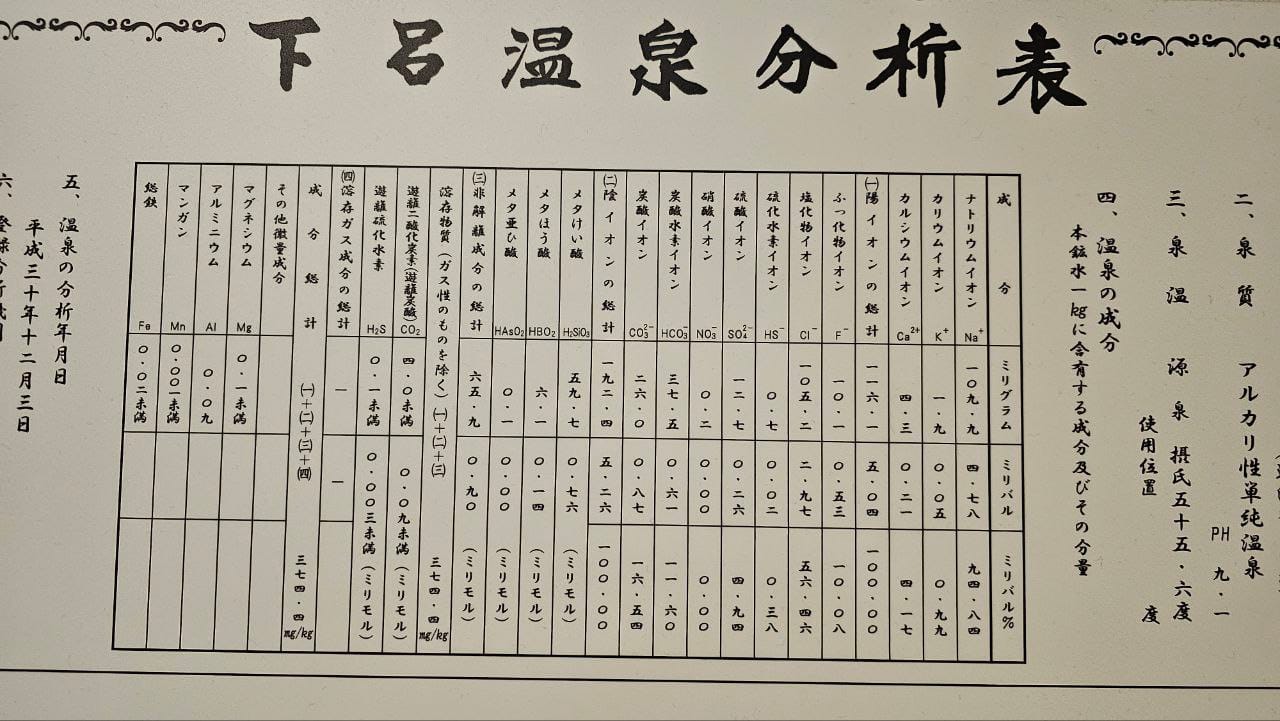 下呂温泉分析表
二、泉質 アルカリ性単純温泉
PH 九・一
三、泉温 源泉 摂氏五十五・六度
使用位置 度
四、温泉の成分
本鉱水一kgに含有する成分及びその分量
成分 ミリグラム ミリバル ミリバル%
ナトリウムイオン Na⁺ 一〇九・九 四・七八 九四・八四
カリウムイオン K⁺ 一・九 〇・〇五 〇・九九
カルシウムイオン Ca²⁺ 四・三 〇・二一 四・一七
㈠陽イオンの総計 一一六・一 五・〇四 一〇〇・〇〇
ふっ化物イオン F⁻ 一〇・一 〇・五三 一〇・〇八
塩化物イオン Cl⁻ 一〇五・二 二・九七 五六・四六
硫化水素イオン HS⁻ 〇・七 〇・〇二 〇・三八
硫酸イオン SO₄²⁻ 一二・七 〇・二六 四・九四
硝酸イオン NO₃⁻ 〇・二 〇・〇〇 〇・〇
炭酸水素イオン HCO₃⁻ 三七・五 〇・六一 一一・六〇
炭酸イオン CO₃²⁻ 二六・〇 〇・八七 一六・五四
㈡陰イオンの総計 一九二・四 五・二六 一〇〇・〇〇
メタけい酸 H₂SiO₃ 五九・七 〇・七六 (ミリモル)
メタほう酸 HBO₂ 六・一 〇・一四 (ミリモル)
メタ亜ひ酸 HAsO₂ 〇・一 〇・〇〇 (ミリモル)
㈢非解離成分の総計 六五・九 〇・九〇 (ミリモル)
溶存物質(ガス性のものを除く)㈠+㈡+㈢ 三七四・四mg/kg
遊離二酸化炭素(遊離炭酸) CO₂ 四・〇未満 〇・〇九未満(ミリモル)
遊離硫化水素 H₂S 〇・一未満 〇・〇〇三未満(ミリモル)
㈣溶存ガス成分の総計 — —
成分総計 ㈠+㈡+㈢+㈣ 三七四・四mg/kg
その他微量成分
マグネシウム Mg 〇・一未満
アルミニウム Al 〇・〇九
マンガン Mn 〇・〇〇一未満
総鉄 Fe 〇・〇二未満
五、温泉の分析年月日
平成三十年十二月三日
六、